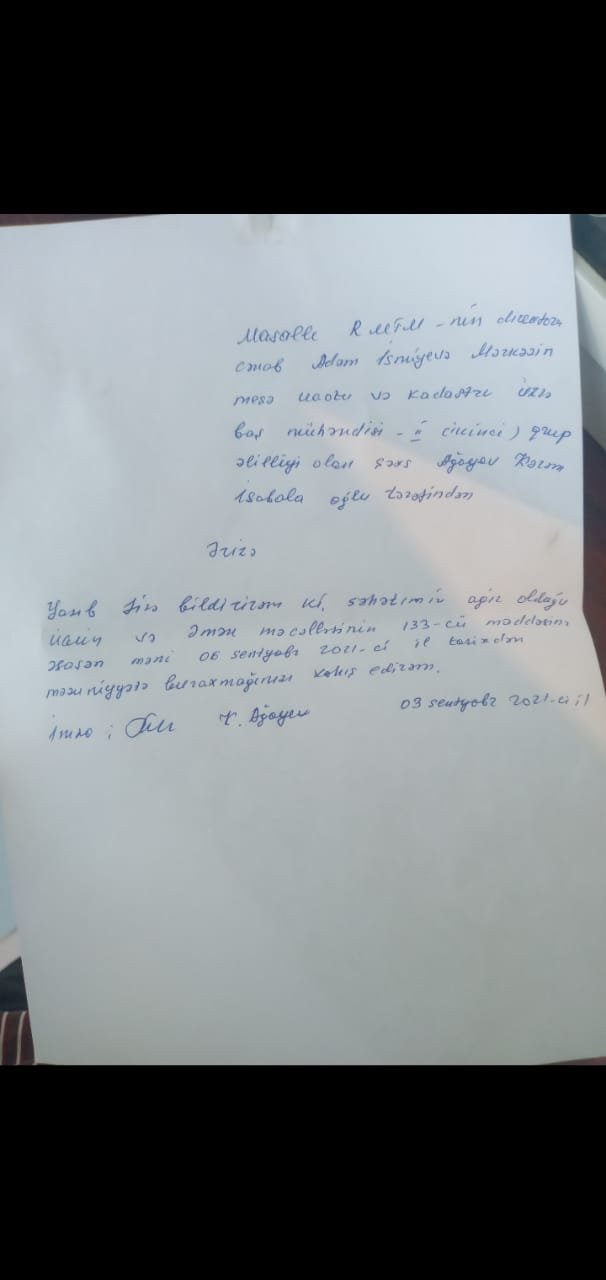 Masallı RMTM-nin direktoru
cənab Adəm İsmiyevə Mərkəzin
meşə uçotu və kadastrı üzrə
baş mühəndisi - II (ikinci) qrup
əlilliyi olan şəxs Ağayev Kərəm
İsabala oğlu tərəfindən
Ərizə
Yazıb Sizə bildirirəm ki, səhətimin ağır olduğu
üçün və Əmək məcəlləsinin 133-cü maddəsinə
əsasən məni 06 sentyabr 2021-ci il tarixdən
məzuniyyətə buraxmağınızı xahiş edirəm.
İmza: K. Ağayev 03 sentyabr 2021-ci il